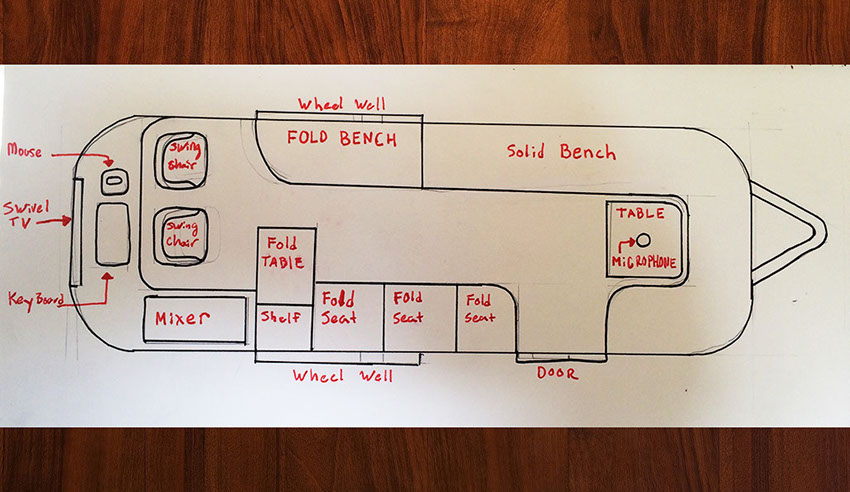 Wheel Well
FOLD BENCH
Solid Bench
Mouse
Swing
Chair
Swivel
TV
Swing
Chair
TABLE
MiCROPHONE
Fold
TABLE
KeyBoard
Mixer
Shelf
Fold
Seat
Fold
Seat
Fold
Seat
Wheel Well
DOOR